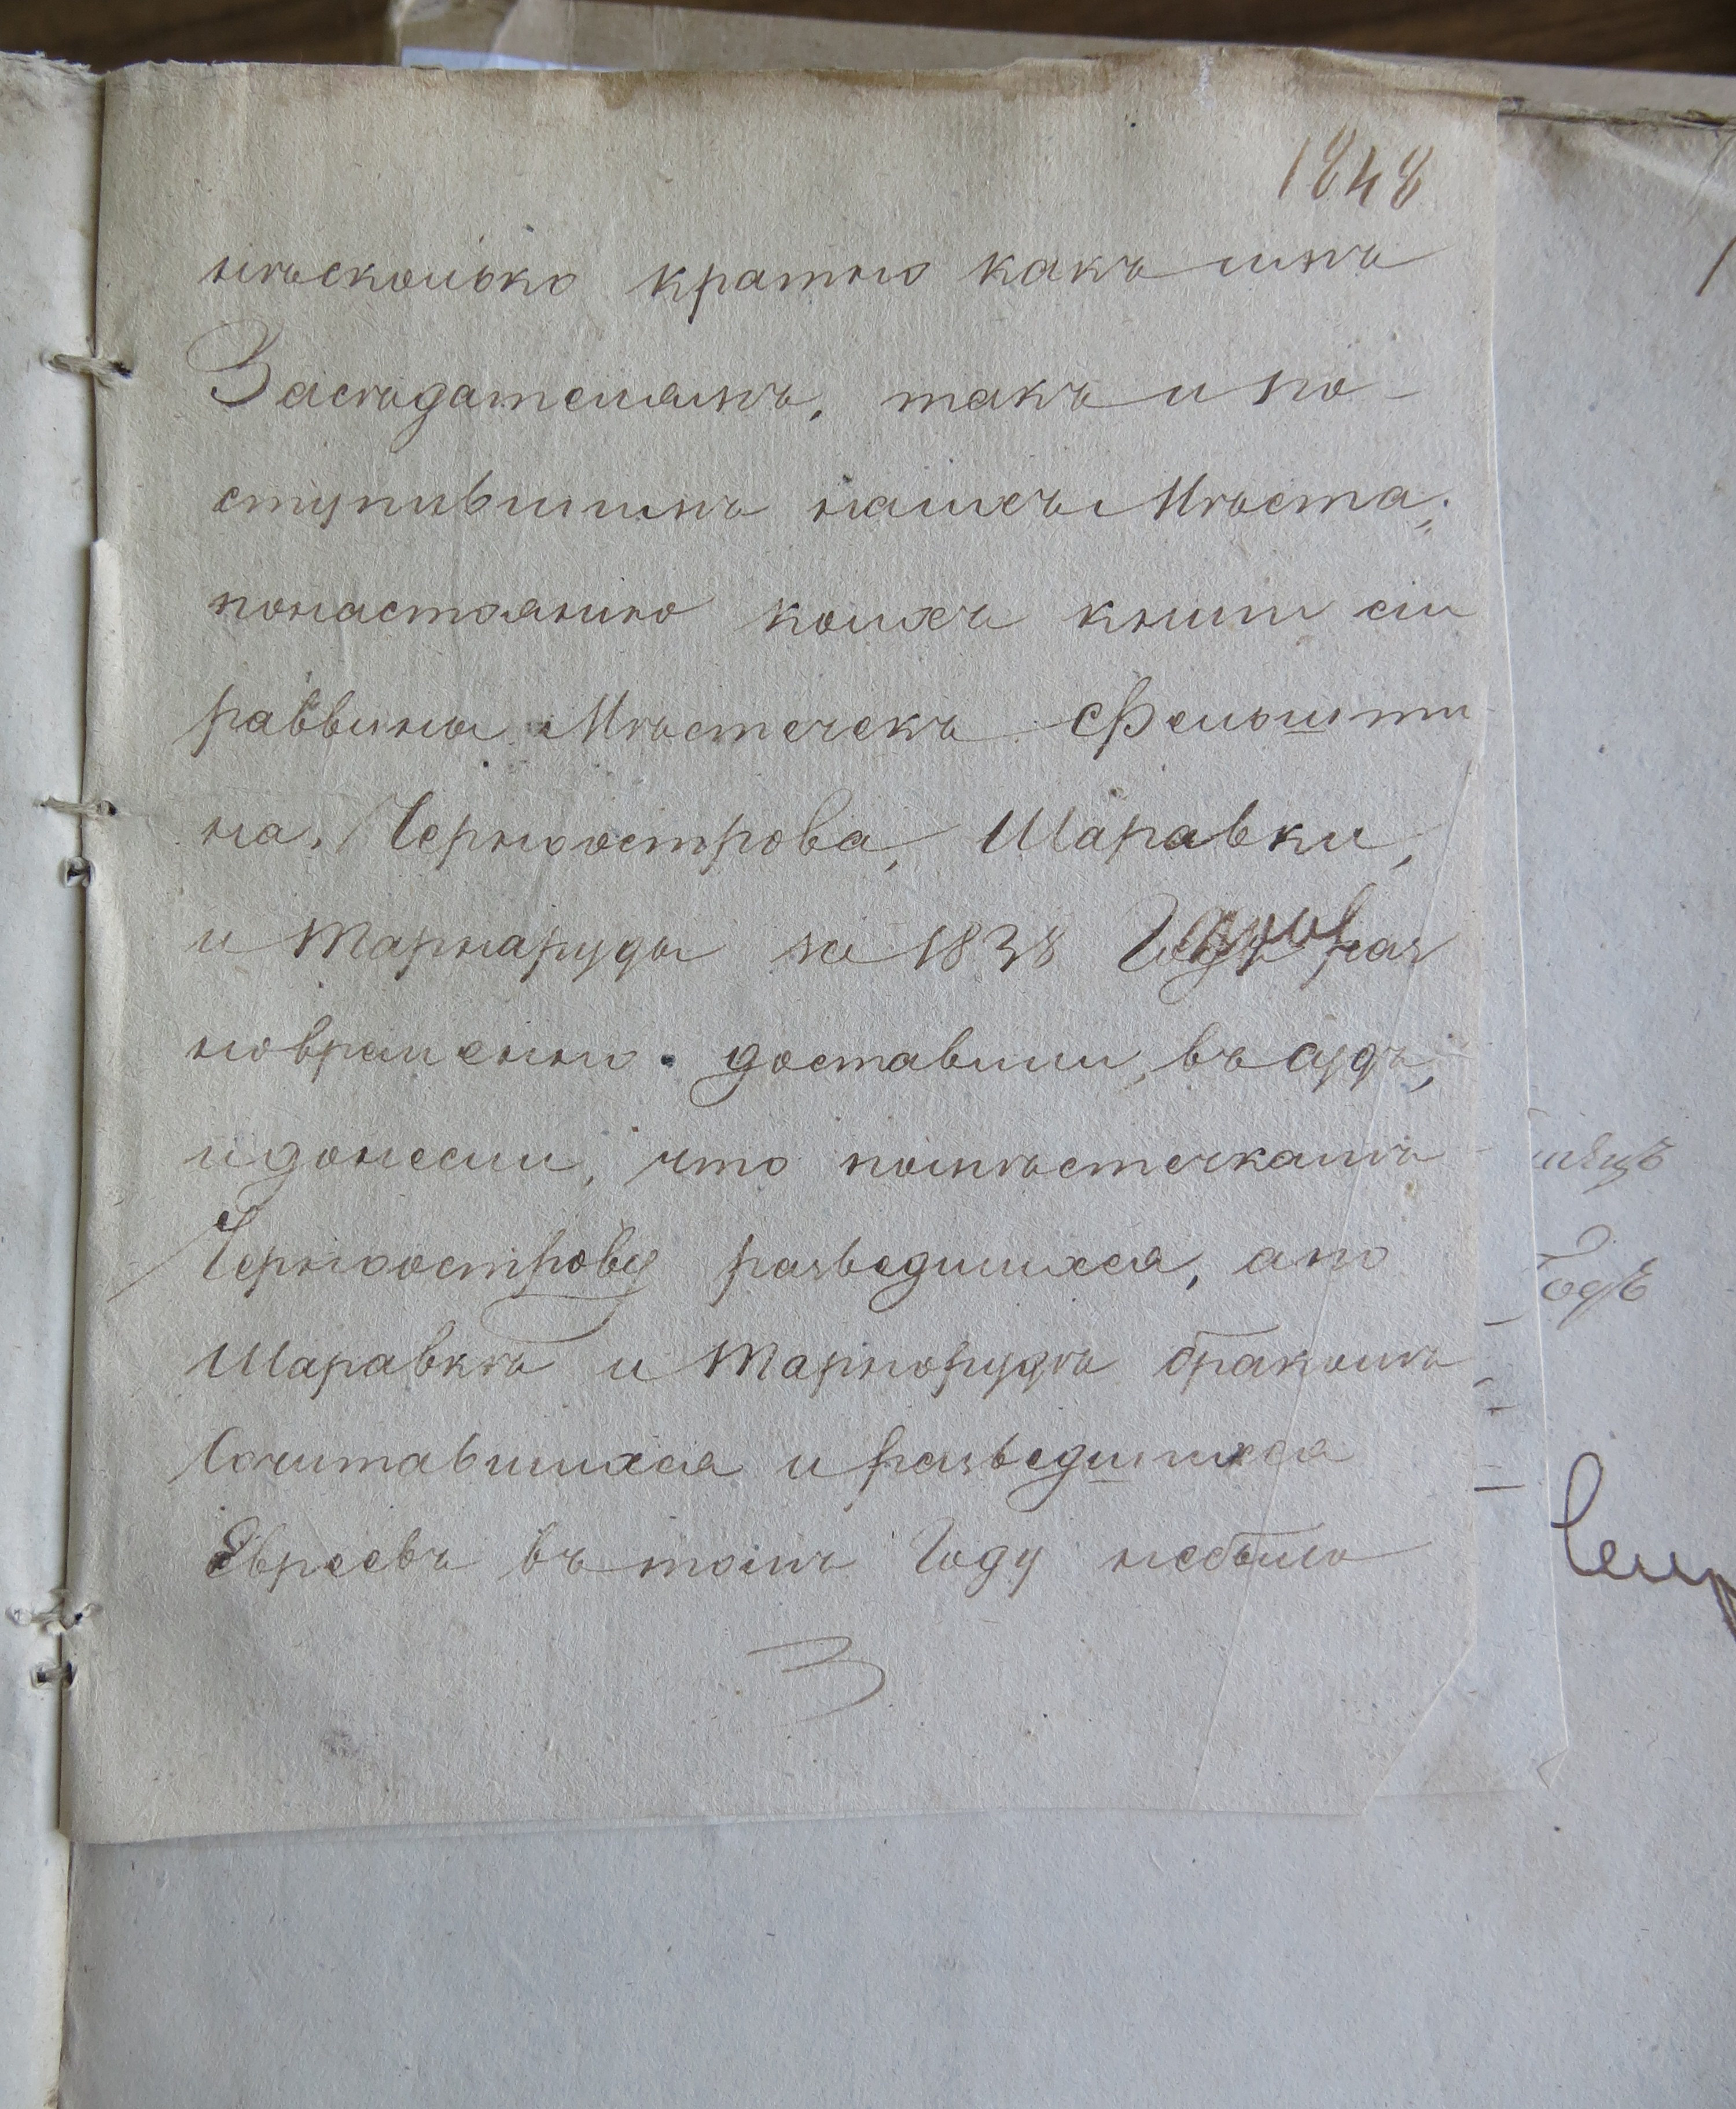 1848
нѣсколько кратно какъ имъ
Засѣдателямъ, такъ и по-
ступившимъ на ихъ Мѣста;
понастоянию коихъ книги сіи
раввины Мѣстечекъ Фельшти
на, Черноострова, Шаравки,
и Тарнаруды за 1838 Годъ раз
новременно доставили, въ судъ,
и донесли, что помѣстечкамъ
Черноострову разведшихся, апо
Шаравкѣ и Тарнорудѣ бракомъ
Сочитавшихся и разведшихся
Евреевъ въ томъ Году небыло